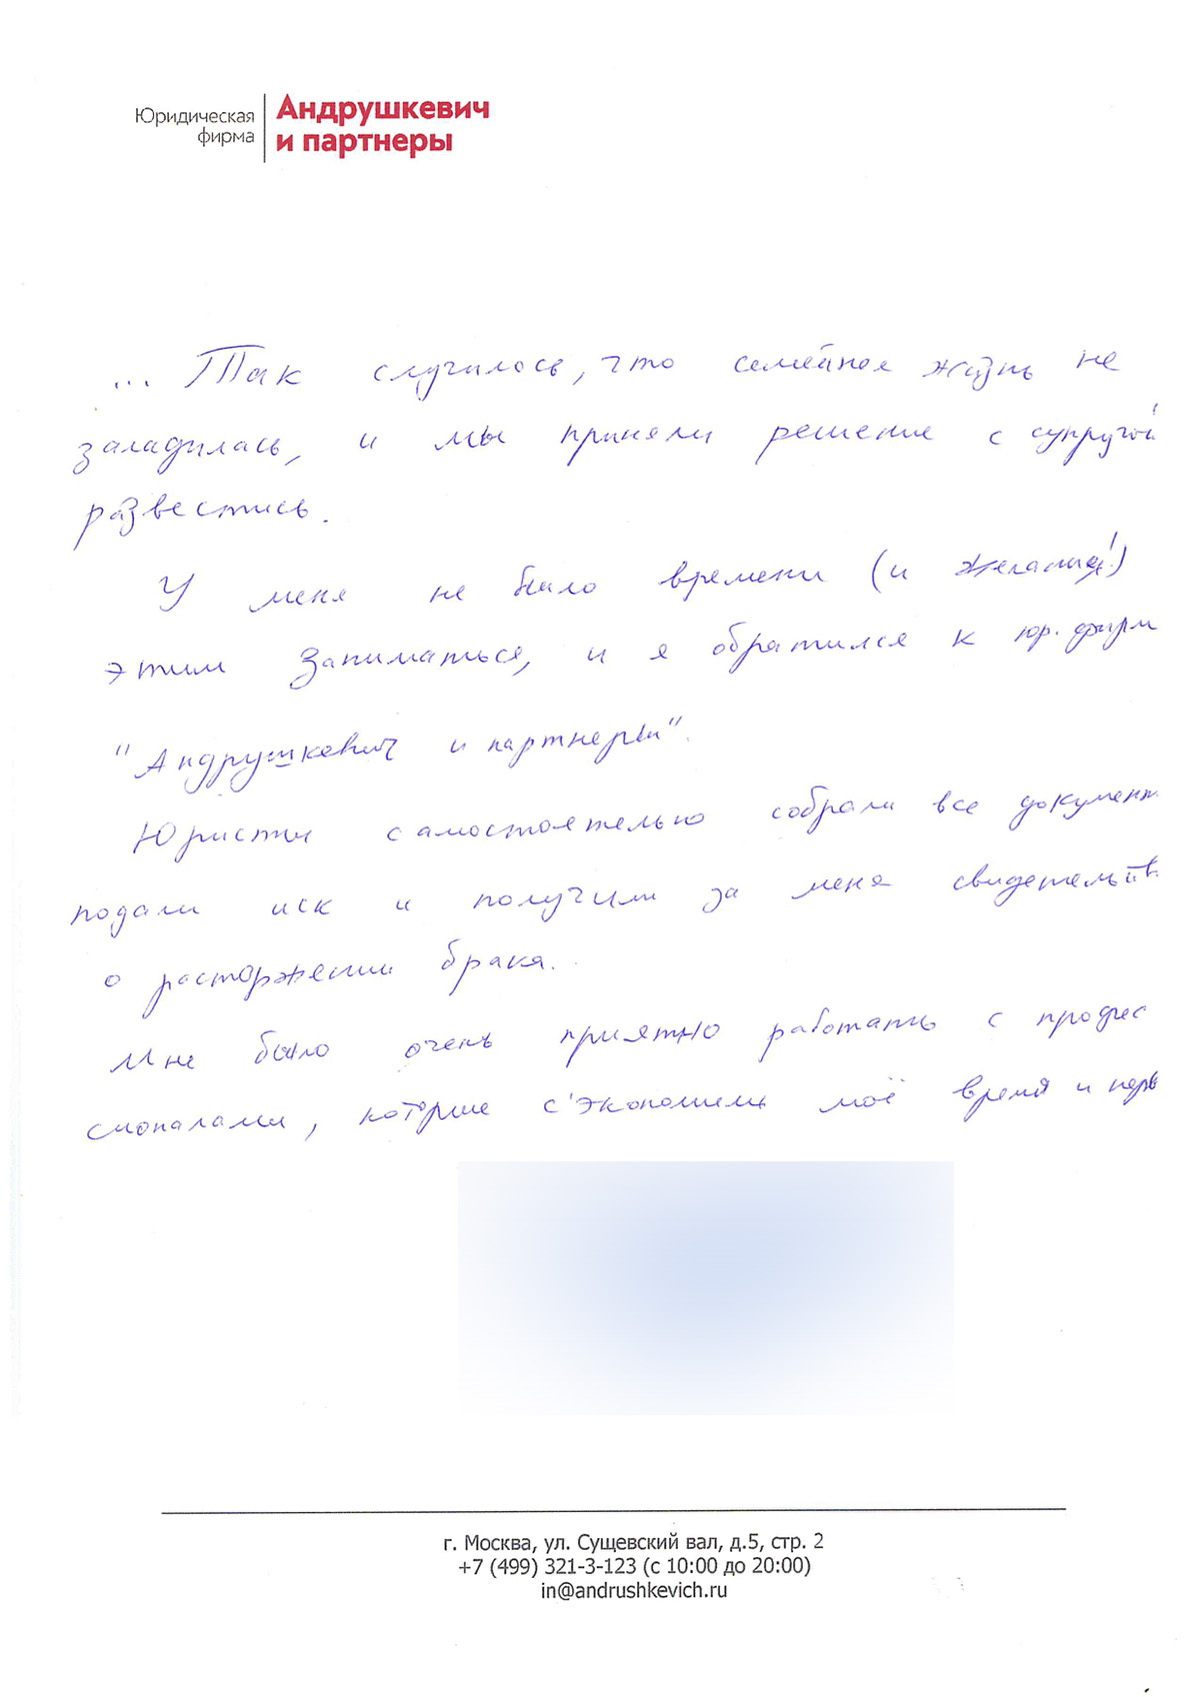 Юридическая
фирма
Андрушкевич
и партнеры
... Так случилось, что семейная жизнь не
заладилась, и мы приняли решение с супругой
развестись.
У меня не было времени (и желания!)
этим заниматься, и я обратился к юр. фирм
"Андрушкевич и партнеры".
Юристы самостоятельно собрали все документ
подали иск и получили за меня свидетельств
о расторжении брака.
Мне было очень приятно работать с профес
сионалами, которые с'экономили моё время и нерв
г. Москва, ул. Сущевский вал, д.5, стр. 2
+7 (499) 321-3-123 (с 10:00 до 20:00)
in@andrushkevich.ru